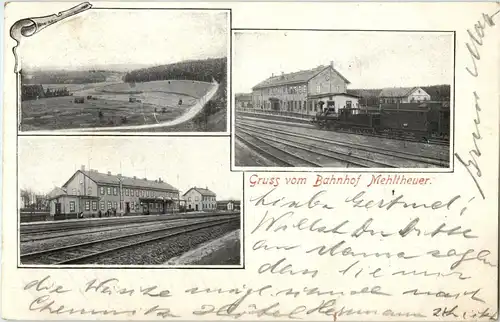 Gruss vom Bahnhof Mehltheuer.
Liebe Gertrud!
Willst Du bitte
an Mama sagen
dass sie mir
die Wäsche mögl. schnell nach
Chemnitz Hotel Herrmann
Gruss Max